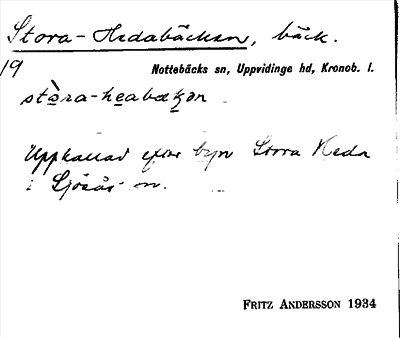 Stora-Hedabäcken, bäck.
19
Nottebäcks sn, Uppvidinge hd, Kronob. l.
stòra-heabækən
Uppkallad efter byn Stora Heda
i Sjösås sn.
FRITZ ANDERSSON 1934